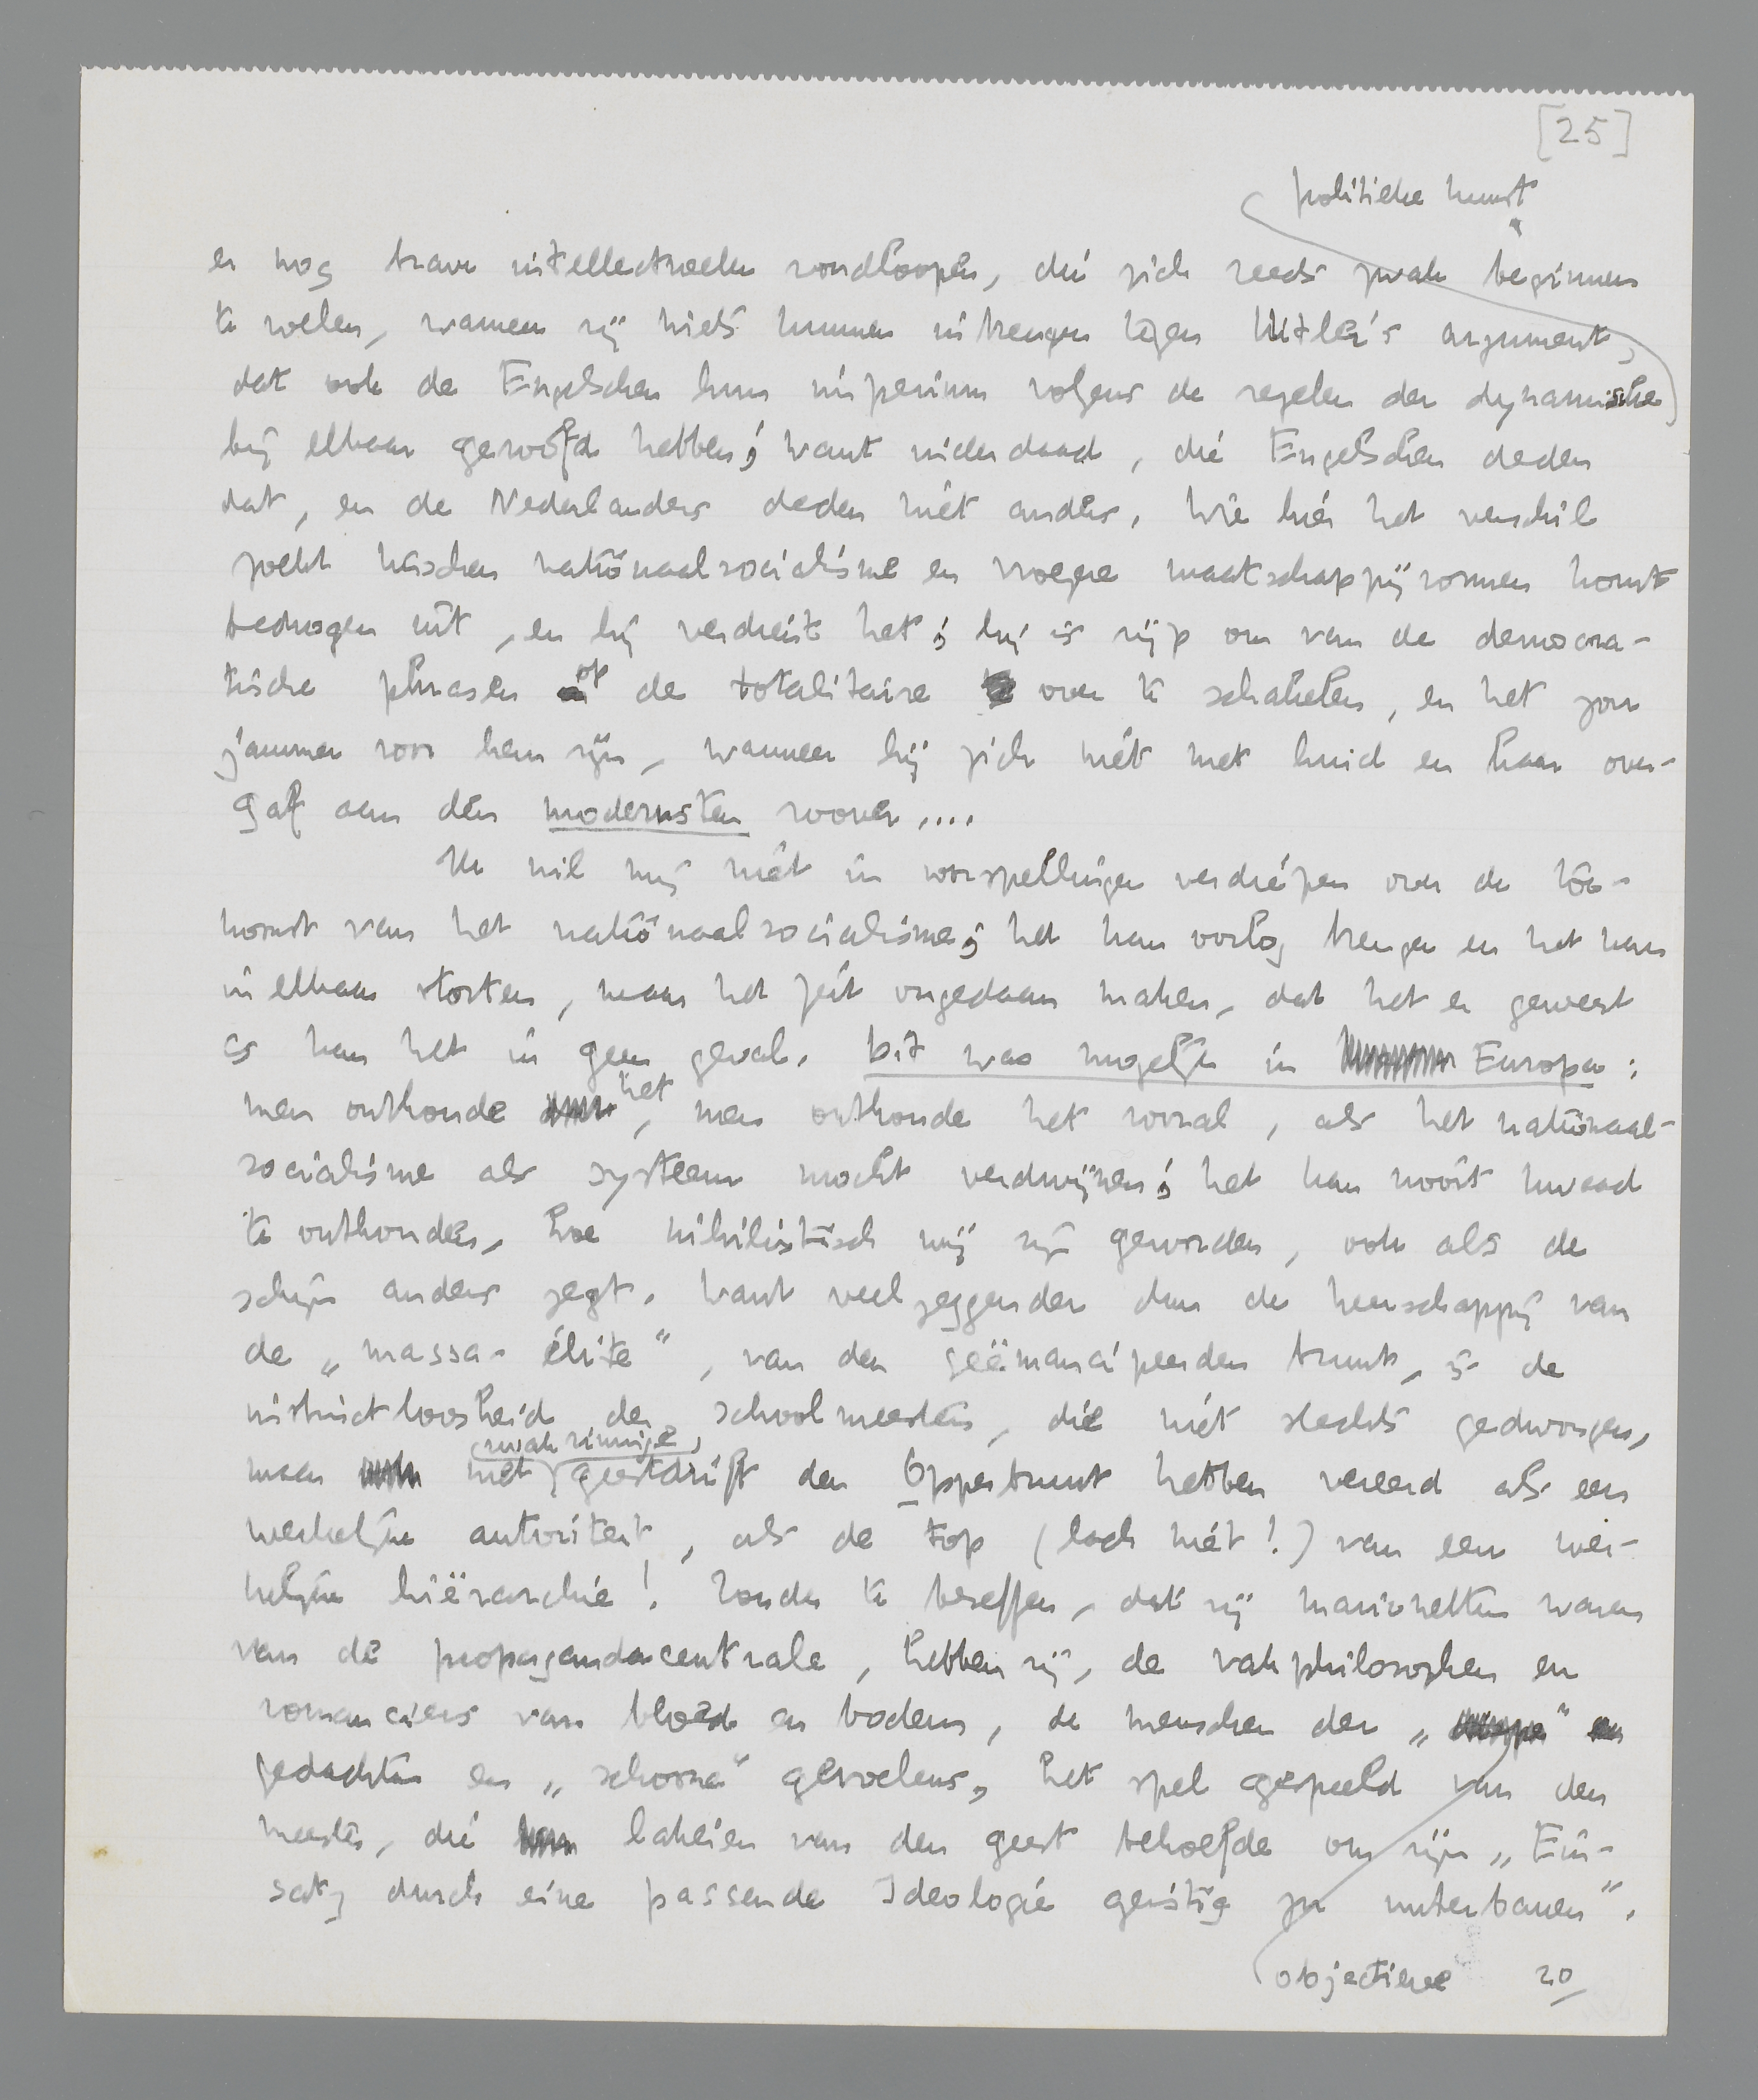 [25]
politieke kunst
er nog brave intellectueelen rondloopen, die zich reeds zwak beginnen
te voelen, wanneer zij niets kunnen inbrengen tegen Hitler's argument,
dat ook de Engelschen hun imperium volgens de regelen der dynamische
bij elkaar geroofd hebben; want inderdaad, die Engelschen deden
dat, en de Nederlanders deden niet anders. Wie hier het verschil
zoekt tusschen nationaalsocialisme en vroegere maatschappijvormen komt
bedrogen uit, en hij verdient het; hij is rijp om van de democra-
tische phrasen op de totalitaire over te schakelen, en het zou
jammer voor hem zijn, wanneer hij zich niet met huid en haar over-
gaf aan den modernsten roover....
Ik wil mij niet in voorspellingen verdiepen over de toe-
komst van het nationaalsocialisme; het kan oorlog brengen en het kan
in elkaar storten, maar het feit ongedaan maken, dat het er geweest
is kan het in geen geval. Dit was mogelijk in Europa:
men onthoude het, men onthoude het vooral, als het nationaal-
socialisme als systeem mocht verdwijnen; het kan nooit kwaad
te onthouden, hoe nihilistisch wij zijn geworden, ook als de
schijn anders zegt. Want veelzeggender dan de heerschappij van
de „massa-élite”, van den geëmancipeerden bruut, is de
instinctloosheid der schoolmeesters, die niet slechts gedwongen,
maar met zwakzinnige geestdrift den Opperbruut hebben vereerd als een
werkelijke autoriteit, als de top (lach niet!) van een wer-
kelijke hiërarchie! Zonder te beseffen, dat zij marionetten waren
van de propagandacentrale, hebben zij, de vakphilosophen en
romanciers van bloed en bodem, de menschen der „
gedachten en „schoone” gevoelens, het spel gespeeld van den
meester, die lakeien van den geest behoefde om zijn „Ein-
satz durch eine passende Ideologie geistig zu unterbauen”.
objectieve 20